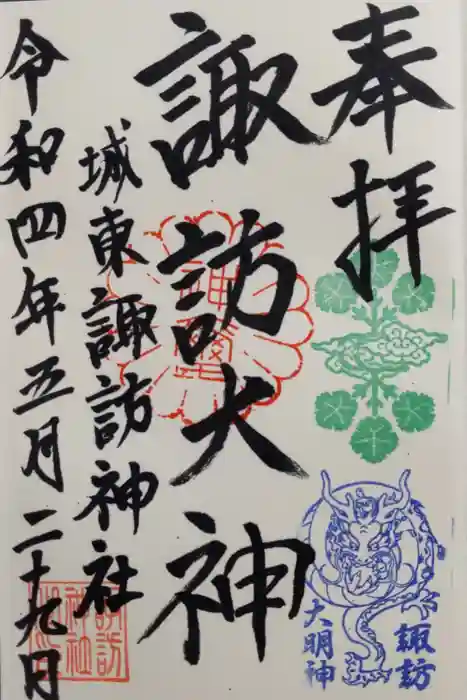 奉拝
諏訪大神
城東諏訪神社
令和四年五月二十九日
諏訪
大明神
諏訪
神社